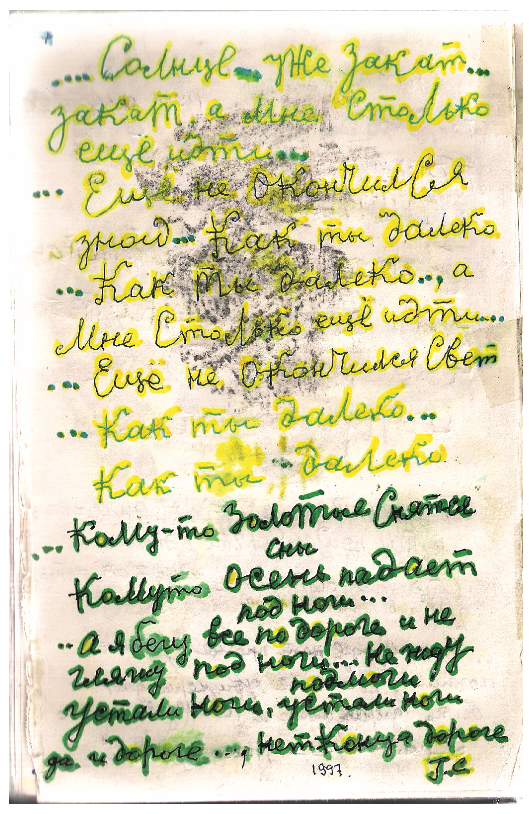 ....Солнце... уже Закат...
закат, а мне Столько
ещё идти...
... Ещё не окончился
зной... Как ты далеко
... Как ты далеко..., а
мне Столько ещё идти...
... Ещё не окончился Свет
... Как ты далеко...
Как ты далеко
... Кому-то Золотые Снятся
сны
Кому то осень падает
под ноги...
.. а я бегу все по дороге и не
гляжу под ноги... не жду
подмоги
устали ноги, устали ноги
да и дороге ..., нет Конца дороге
1997.
Т.С